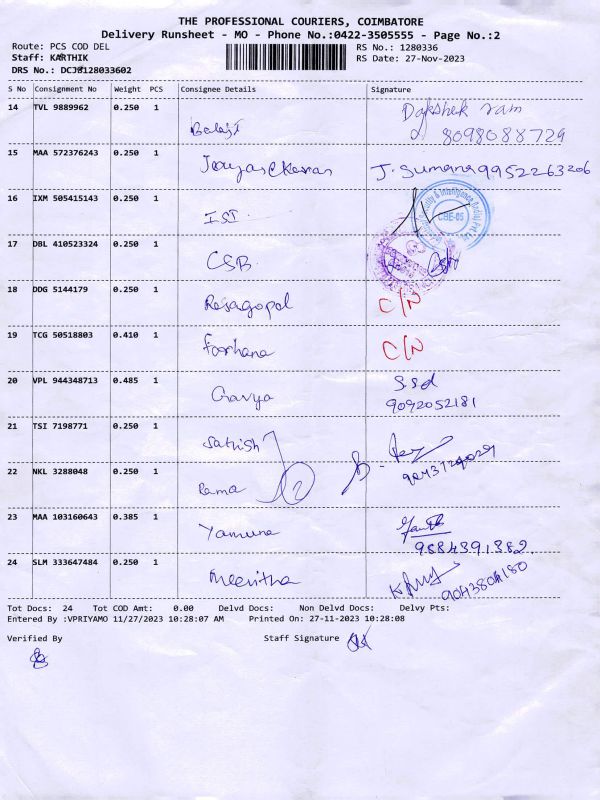 THE PROFESSIONAL COURIERS, COIMBATORE
Delivery Runsheet - MO - Phone No.:0422-3505555 - Page No.:2
Route: PCS COD DEL
RS No.: 1280336
Staff: KARTHIK
RS Date: 27-Nov-2023
DRS No.: DCJ8128033602
S No Consignment No Weight PCS Consignee Details Signature
14 TVL 9889962 0.250 1 Balaji
8098088729
15 MAA 572376243 0.250 1 J. Sumana 9952263206
16 IXM 505415143 0.250 1 IST
CBE-05
17 DBL 410523324 0.250 1 CSB
18 DDG 5144179 0.250 1 Rajagopal C/N
19 TCG 50518803 0.410 1 Farhana C/N
20 VPL 944348713 0.485 1 Gavya S.sd
9092052181
21 TSI 7198771 0.250 1 Satrish
22 NKL 3288048 0.250 1 Rama
23 MAA 103160643 0.385 1 Yamuna
9884391382
24 SLM 333647484 0.250 1
Tot Docs: 24 Tot COD Amt: 0.00 Delvd Docs: Non Delvd Docs: Delvy Pts:
Entered By :VPRIYAMO 11/27/2023 10:28:07 AM Printed On: 27-11-2023 10:28:08
Verified By Staff Signature